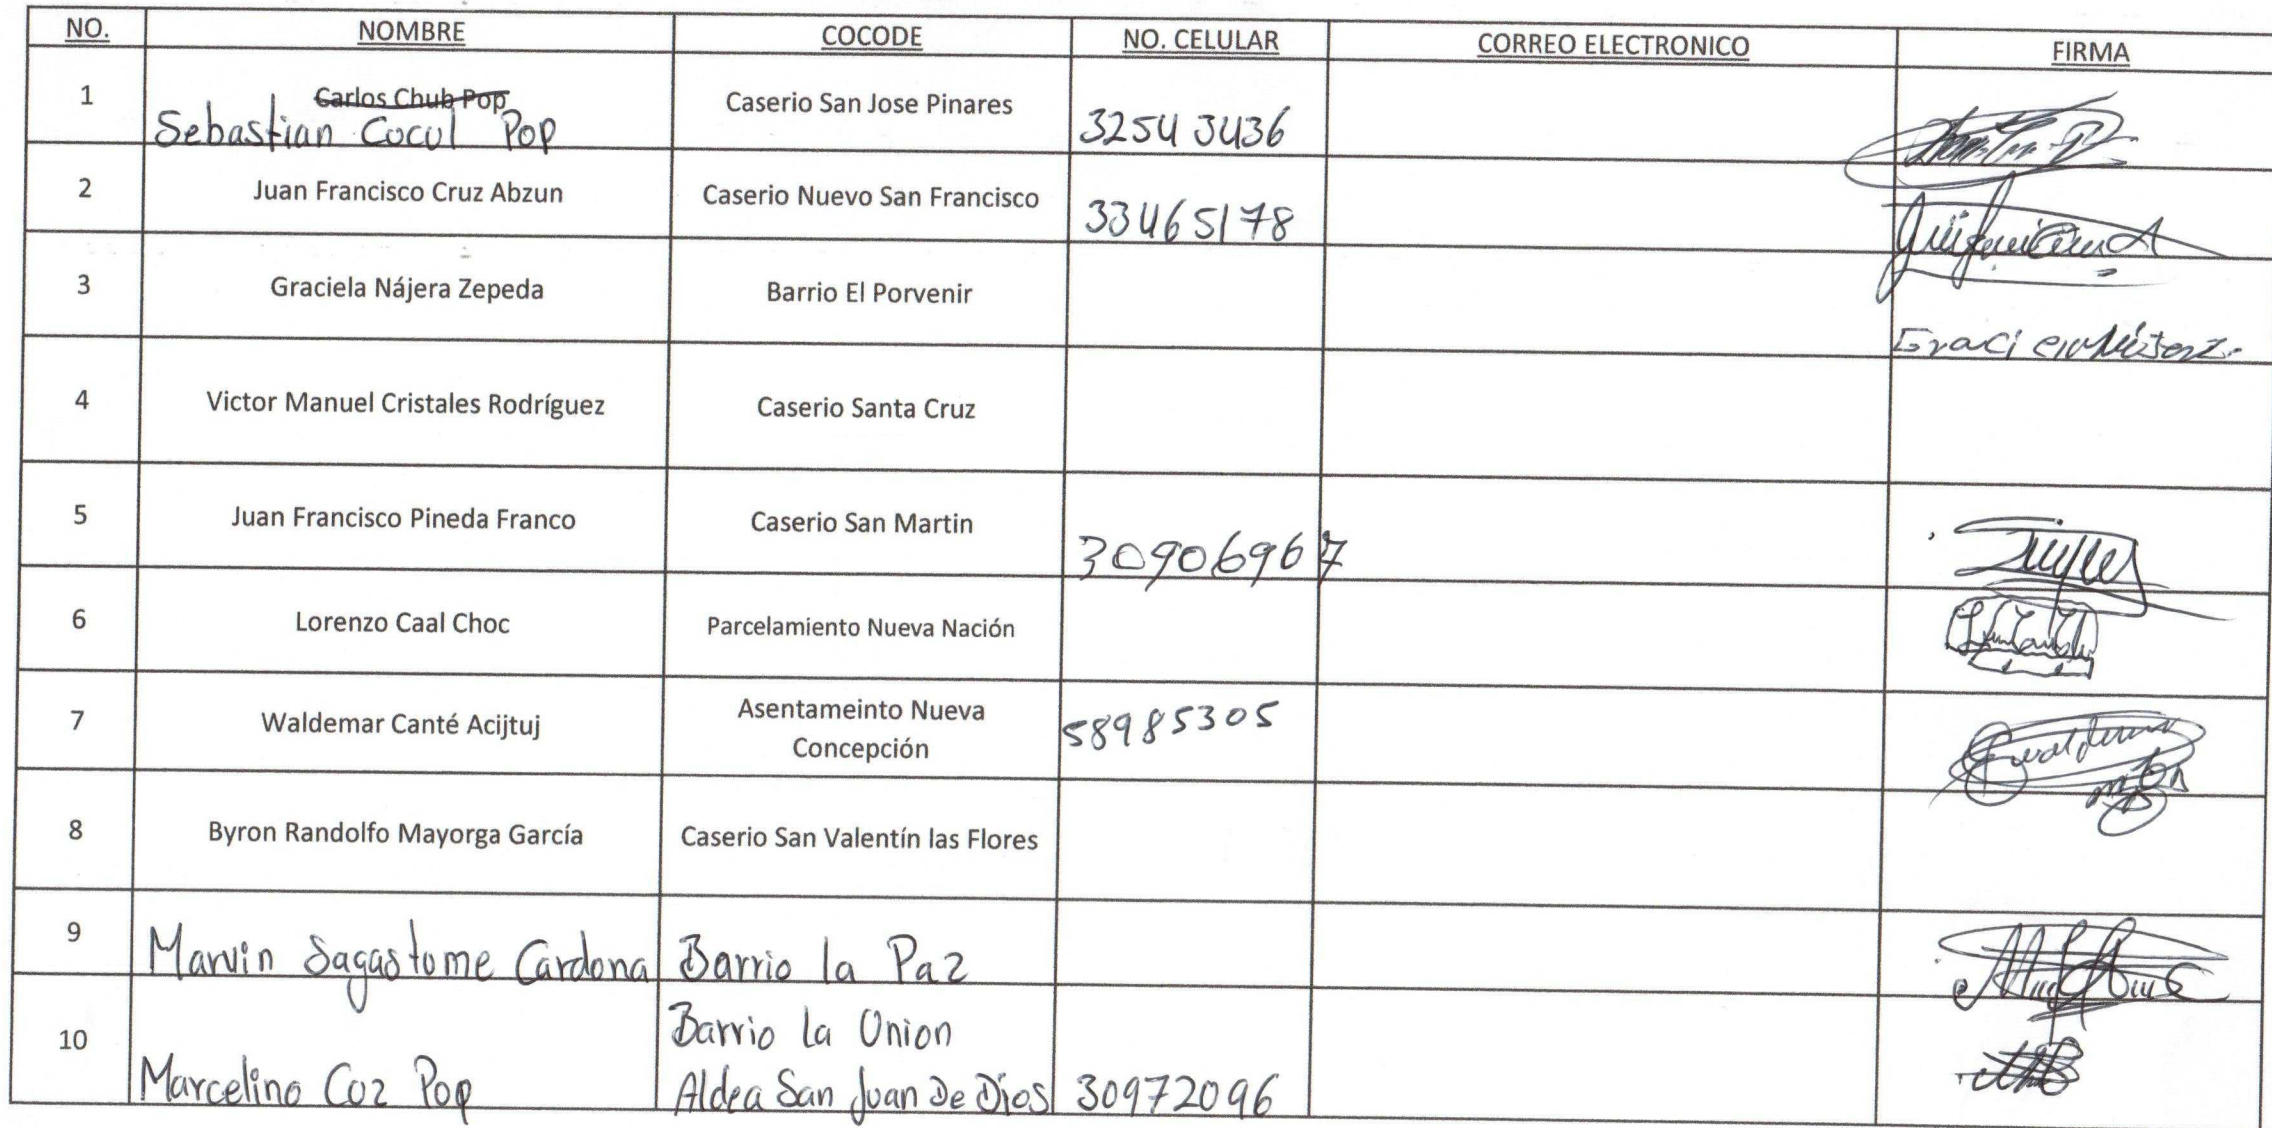 NO. NOMBRE COCODE NO. CELULAR CORREO ELECTRONICO FIRMA
1 Carlos Chub Pop Caserio San Jose Pinares
Sebastian Cucul Pop 32543436
2 Juan Francisco Cruz Abzun Caserio Nuevo San Francisco 33465178
3 Graciela Nájera Zepeda Barrio El Porvenir
4 Victor Manuel Cristales Rodríguez Caserio Santa Cruz
5 Juan Francisco Pineda Franco Caserio San Martin 30906967
6 Lorenzo Caal Choc Parcelamiento Nueva Nación
7 Waldemar Canté Acijtuj Asentameinto Nueva 58985305
Concepción
8 Byron Randolfo Mayorga García Caserio San Valentín las Flores
9 Marvin Sagastume Cardona Barrio la Paz
10 Barrio La Union
Marcelino Coz Pop Aldea San Juan De Dios 30972096